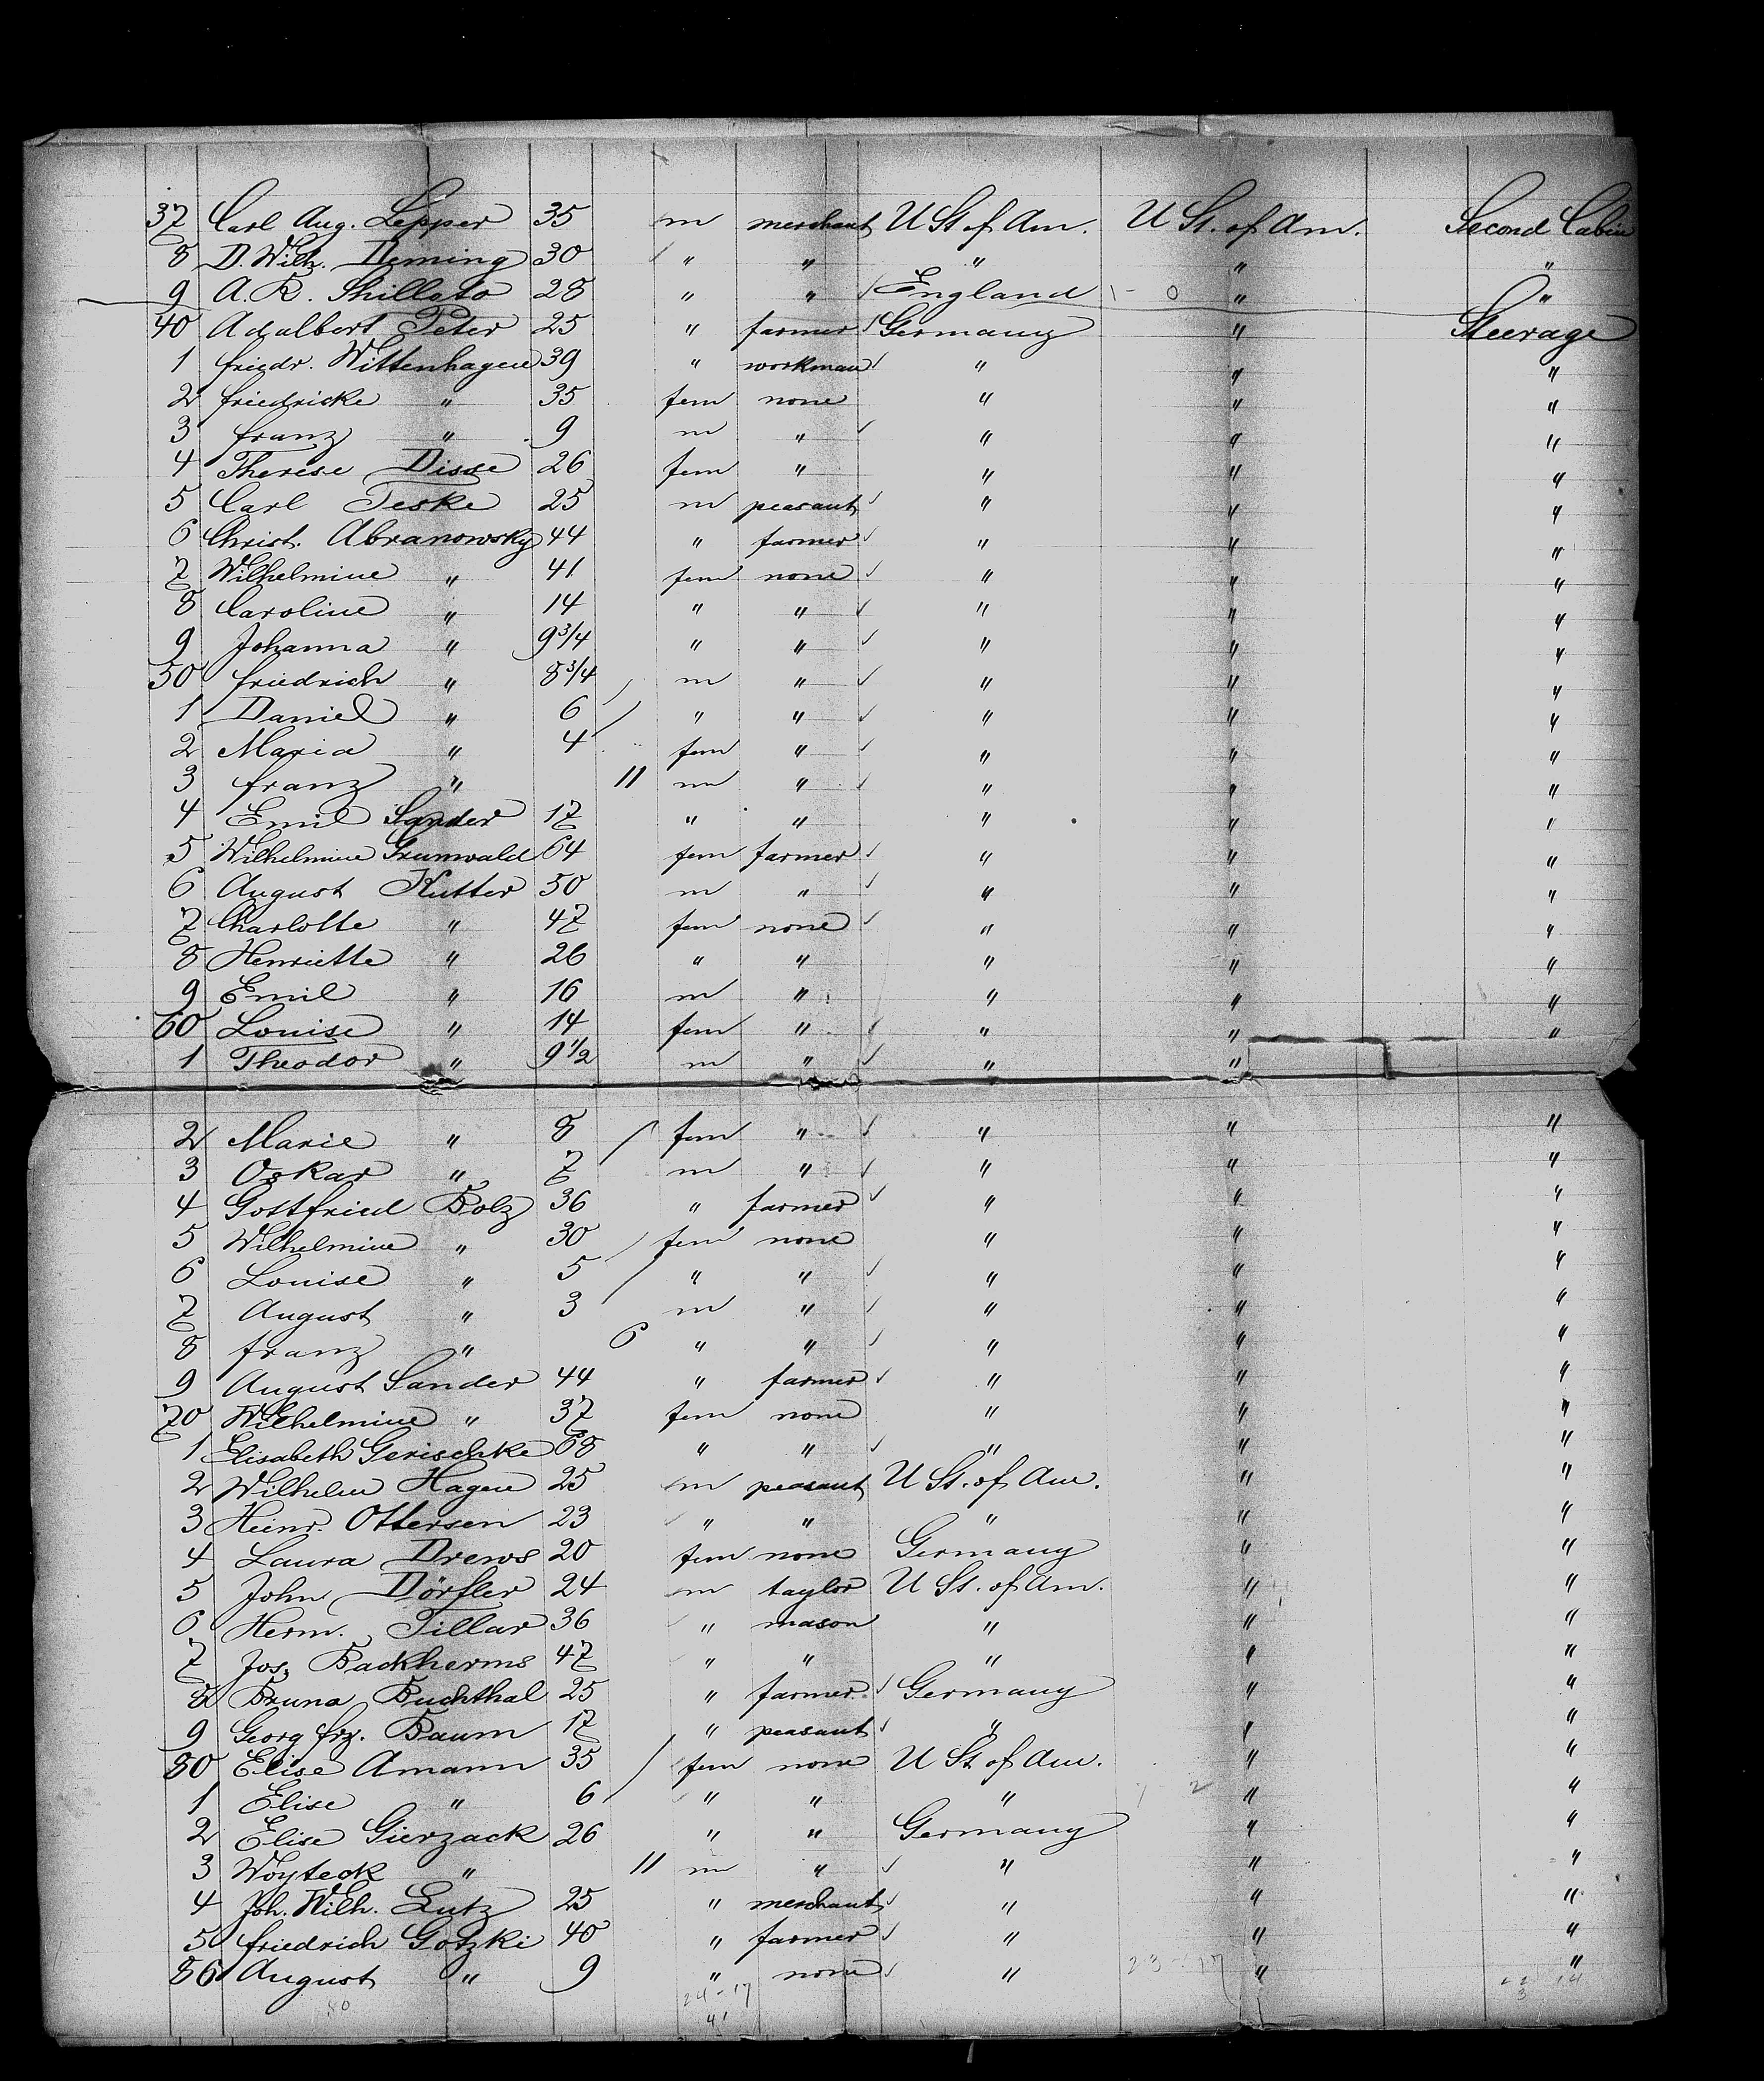 37 Carl Aug. Lepper 35 m merchant U St of Am. U St. of Am. Second Cabin
8 D. Wilh. Deming 30 " " " " "
9 A. R. Shilloto 28 " " England " "
40 Adalbert Peter 25 " farmer Germany " Steerage
1 friedr. Wittenhagen 39 " workman " " "
2 friedricke " 35 fem none " " "
3 franz " 9 m " " " "
4 Therese Disse 26 fem " " " "
5 Carl Teske 25 m peasant " " "
6 Christ. Abranowsky 44 " farmer " " "
7 Wilhelmine " 41 fem none " " "
8 Caroline " 14 " " " " "
9 Johanna " 9 3/4 " " " " "
50 friedrich " 8 3/4 m " " " "
1 Daniel " 6 " " " " "
2 Maria " 4 fem " " " "
3 franz " 11 m " " " "
4 Emil Sander 17 " " " " "
5 Wilhelmine Grunwald 64 fem farmer " " "
6 August Kutter 50 m " " " "
7 Charlotte " 47 fem none " " "
8 Henriette " 26 " " " " "
9 Emil " 16 m " " " "
60 Louise " 14 fem " " " "
1 Theodor " 9 1/2 m " " "
2 Marie " 8 fem " " " "
3 Oskar " 7 m " " " "
4 Gottfried Bolz 36 " farmer " " "
5 Wilhelmine " 30 fem none " " "
6 Louise " 5 " " " " "
7 August " 3 m " " " "
8 franz " 6 " " " " "
9 August Sander 44 " farmer " " "
70 Wilhelmine " 37 fem none " " "
1 Elisabeth Gerischke 68 " " " " "
2 Wilhelm Hagen 25 m peasant U St. of Am. " "
3 Heinr. Ottersen 23 " " " " "
4 Laura Drews 20 fem none Germany " "
5 John Dörfler 24 m taylor U St. of Am. " "
6 Herm. Tillar 36 " mason " " "
7 Jos. Backherms 47 " " " " "
8 Bruna Buchthal 25 " farmer Germany " "
9 Georg frz. Baum 17 " peasant " " "
80 Elise Amann 35 fem none U St of Am. " "
1 Elise " 6 " " " " "
2 Elise Gierzack 26 " " Germany " "
3 Woyteck " 11 m " " " "
4 Joh. Wilh. Lutz 25 " merchant " " "
5 friedrich Gotzki 40 " farmer " " "
86 August " 9 " none " " "
50 24-17 23-17
41